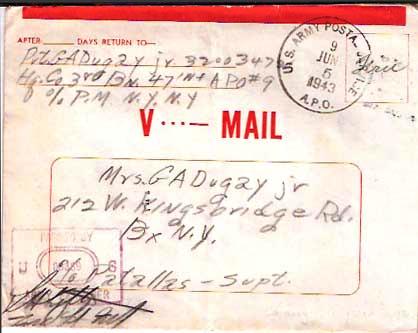 AFTER DAYS RETURN TO
Pvt. G A Dugay jr. 32003479
Hq. Co 3rd Bn. 47 Inf APO #9
% P.M. N.Y. N.Y
U.S. ARMY POSTAL
9
JUN
5
1943
A.P.O.
Free
V ···— MAIL
Mrs. G A Dugay jr
212 W. Kingsbridge Rd.
Bx N.Y.
% Patallas - Supt.
PASSED BY
U S